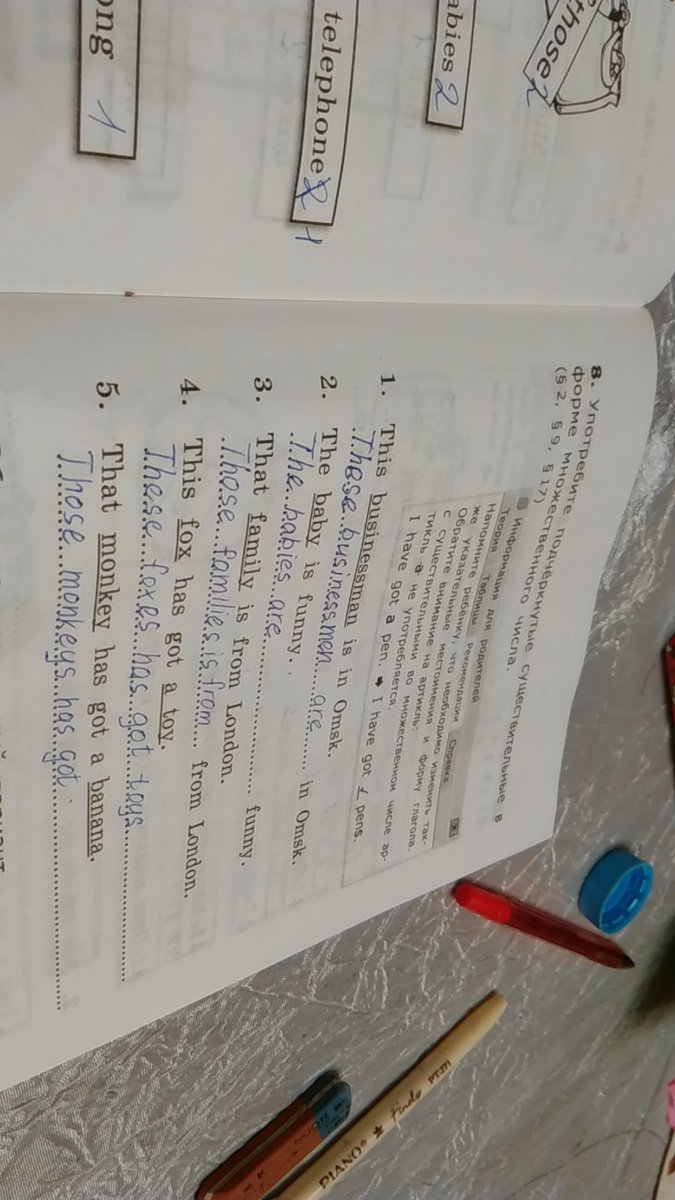 those 2
abies 2
telephone 2 1
ong 1
8. Употребите подчёркнутые существительные в
форме множественного числа.
(§2, §9, §17)
Информация для родителей
Теория Таблицы Рекомендации Справка x
Напомните ребёнку, что необходимо изменить так-
же указательные местоимения и форму глагола.
Обратите внимание на артикль:
с существительными во множественном числе ар-
тикль a не употребляется.
I have got a pen. → I have got pens.
1. This businessman is in Omsk.
These businessmen are in Omsk.
2. The baby is funny.
The babies are funny.
3. That family is from London.
Those families is from from London.
4. This fox has got a toy.
These foxes has got toys
5. That monkey has got a banana.
Those monkeys has got.
PIANO Finde PT271